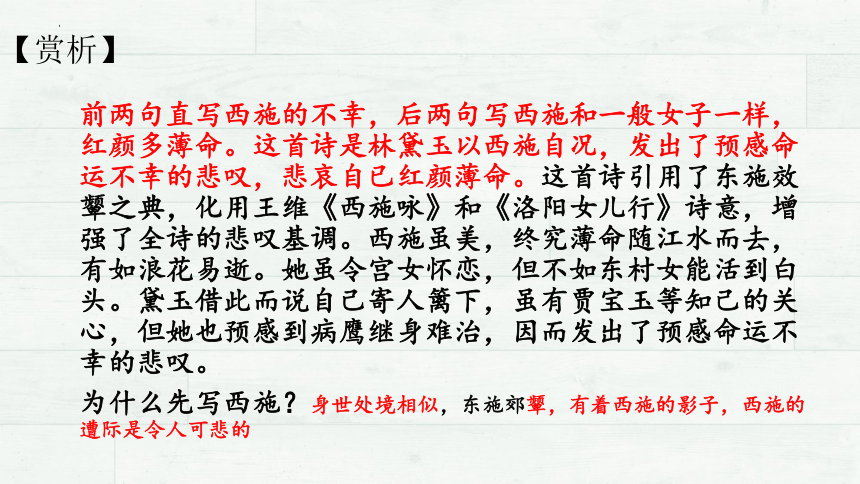 【赏析】
前两句直写西施的不幸，后两句写西施和一般女子一样，
红颜多薄命。这首诗是林黛玉以西施自况，发出了预感命
运不幸的悲叹，悲哀自己红颜薄命。这首诗引用了东施效
颦之典，化用王维《西施咏》和《洛阳女儿行》诗意，增
强了全诗的悲叹基调。西施虽美，终究薄命随江水而去，
有如浪花易逝。她虽令宫女怀恋，但不如东村女能活到白
头。黛玉借此而说自己寄人篱下，虽有贾宝玉等知己的关
心，但她也预感到病鹰继身难治，因而发出了预感命运不
幸的悲叹。
为什么先写西施？身世处境相似，东施郊颦，有着西施的影子，西施的
遭际是令人可悲的